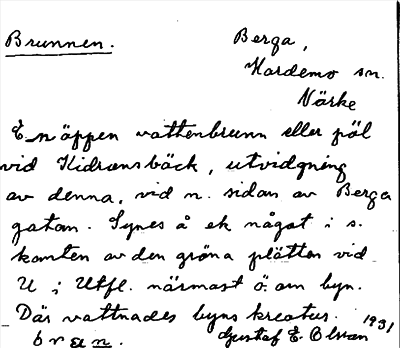 Brunnen.
Berga,
Hardemo sn.
Närke
En öppen vattenbrunn eller pöl
vid Kidronsbäck, utvidgning
av denna, vid n. sidan av Berga
gatan. Synes å ek något i s.
kanten av den gröna plätten vid
U i Utfl. närmast ö. om byn.
Där vattnades byns kreatur.
1931
bran.
Gustaf E. Olsson